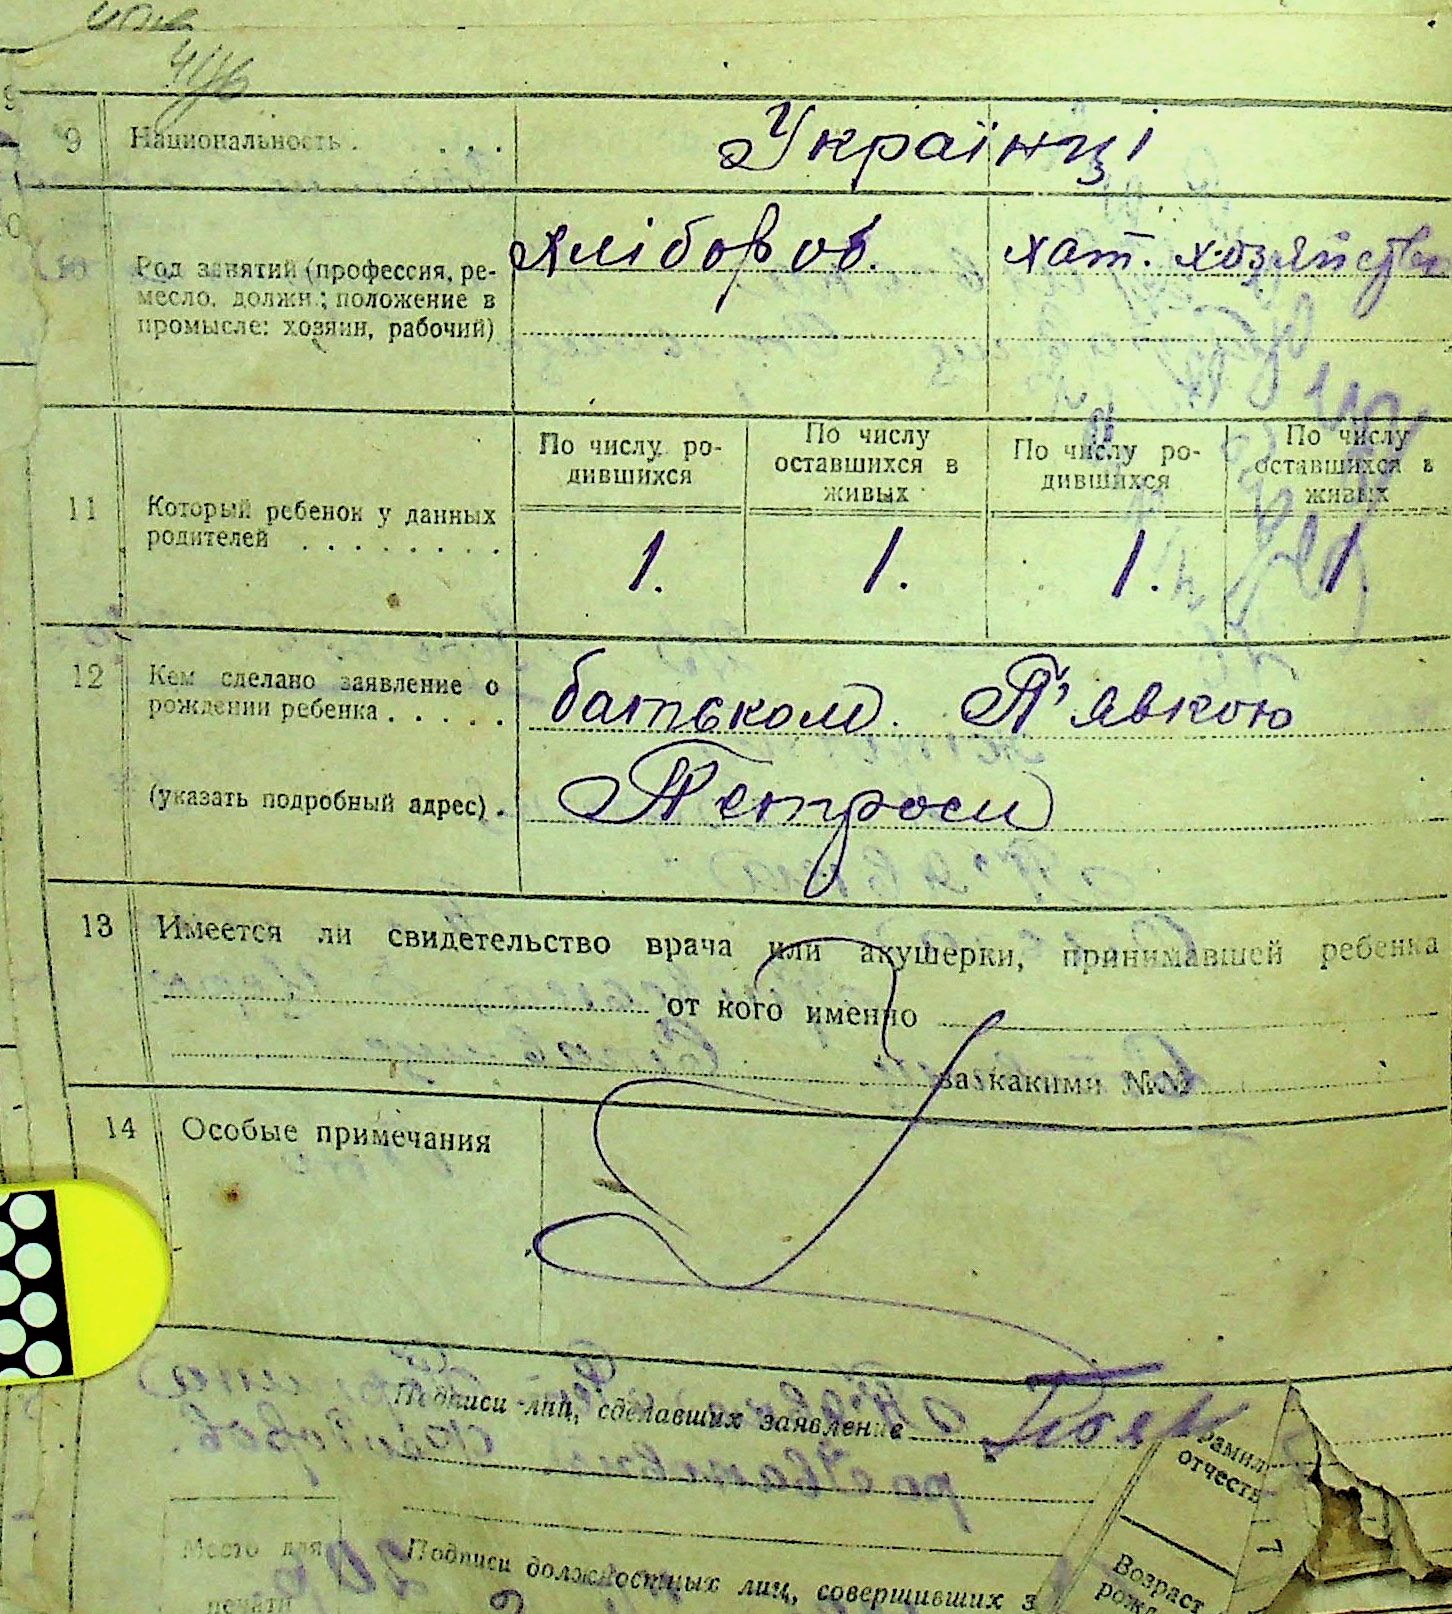 9 Национальность . . . . Українці
10 Род занятий (профессия, ре-
месло, должн.; положение в
промысле: хозяин, рабочий)
хлібороб. хат. хозяйство
11 Который ребенок у данных
родителей . . . . . . . .
По числу ро-
дившихся
По числу
оставшихся в
живых
По числу ро-
дившихся
По числу
оставшихся в
живых
1. 1. 1. 1.
12 Кем сделано заявление о
рождении ребенка . . . . .
(указать подробный адрес) .
батьком П'явкою
Петром
13 Имеется ли свидетельство врача или акушерки, принимавшей ребенка
от кого именно
за какими №№
14 Особые примечания
Подписи лиц, сделавших заявление
Место для
печати
Подписи должностных лиц, совершивших з
Фамил
отчеств
Возраст
рожд